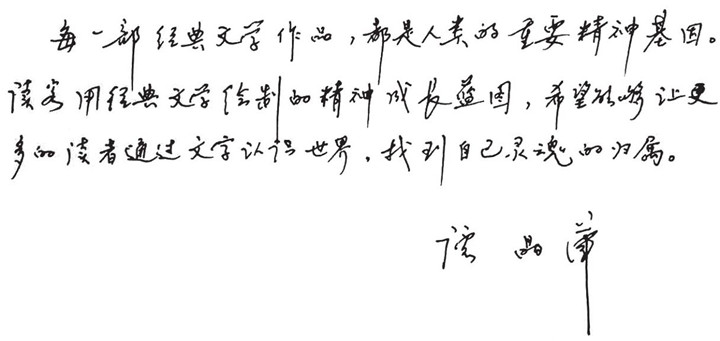 每一部经典文学作品，都是人类的重要精神基因。
读客用经典文学绘制的精神成长蓝图，希望能够让更
多的读者通过文字认识世界，找到自己灵魂的归属。
谭晶华